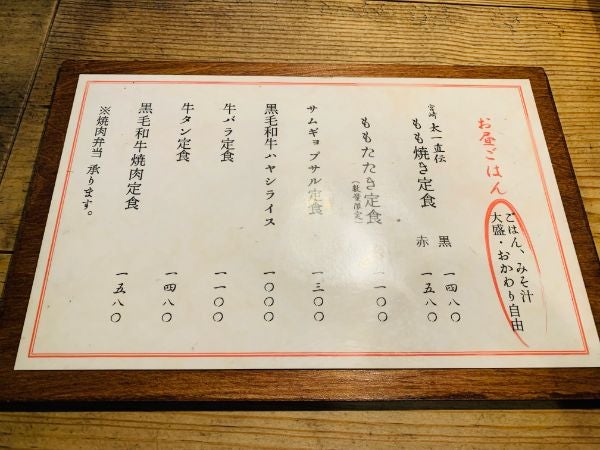 お昼ごはん
ごはん、みそ汁
大盛・おかわり自由
宮崎 太一直伝
もも焼き定食
黒 一四八〇
赤 一五八〇
ももたたき定食
(数量限定)
一一〇〇
サムギョプサル定食 一三〇〇
黒毛和牛ハヤシライス 一〇〇〇
牛バラ定食 一一〇〇
牛タン定食 一四八〇
黒毛和牛焼肉定食 一五八〇
※焼肉弁当 承ります。